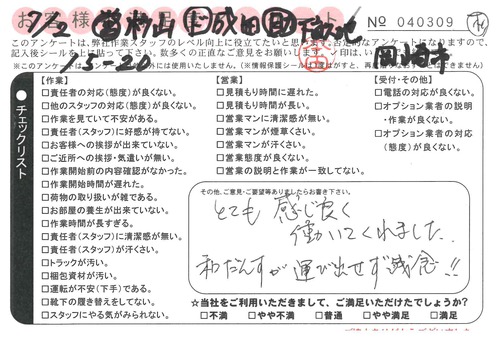 お客様
7/2 営 杉山 成田 助
№ 040309
15-20
このアンケートは、弊社作業スタッフのレベル向上に役立てたいと
記入後シールを上に貼って
数多くの正直なご意見がほしいので
【作業】
□責任者の対応(態度)が良くない。
□他のスタッフの対応(態度)が良くない。
□作業を見ていて不安がある。
□責任者(スタッフ)に好感が持てない。
□お客様への挨拶が出来ていない。
□ご近所への挨拶・気遣いが無い。
□作業開始前の内容確認がなかった。
□作業開始時間が遅れた。
□荷物の取り扱いが雑である。
□お部屋の養生が出来ていない。
□作業時間が長すぎる。
□責任者(スタッフ)に清潔感が無い。
□責任者(スタッフ)が汗くさい。
□トラックが汚い。
□梱包資材が汚い。
□運転が不安(下手)である。
□靴下の履き替えをしてない。
□スタッフにやる気がみられない。
【営業】
□見積もり時間に遅れた。
□見積もり時間が長い。
□営業マンに清潔感が無い。
□営業マンが煙草くさい。
□営業マンが汗くさい。
□営業態度が良くない。
□営業の説明と作業が一致してない。
【受付・その他】
□電話の対応が良くない。
□オプション業者の説明
・作業が良くない。
□オプション業者の対応
(態度)が良くない。
●チェックリスト
その他、ご意見・ご要望等ありましたらお書き下さい。
とても 感じ良く
働いてくれました.
和だんすが 運び出せず残念!!
☆当社をご利用いただきまして、ご満足いただけたでしょうか?
□不満 □やや不満 □普通 □やや満足 □満足